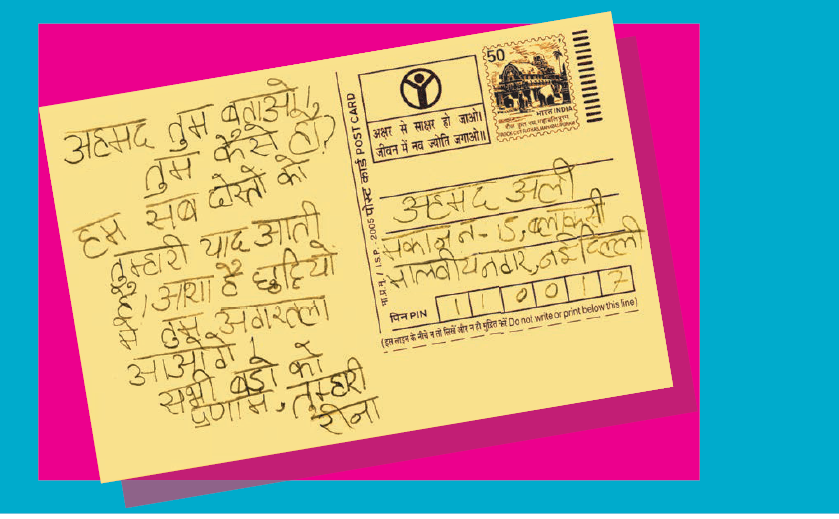 अहमद तुम बताओ।
तुम कैसे हो?
हम सब दोस्तो को
तुम्हारी याद आती
है, आशा है छुट्टियो
में तुम अगरतला
आओगे।
सभी बडो को
प्रणाम, तुम्हारी
रीना
पोस्ट कार्ड POST CARD
2005
50
भारत INDIA
अक्षर से साक्षर हो जाओ।
जीवन में नव ज्योति जगाओ॥
अहमद अली
मकान न- 5, ब्लाक सी
मालवीय नगर, नई दिल्ली
पिन PIN 110017
(इस लाइन के नीचे न तो लिखें और न ही मुद्रित करें Do not write or print below this line)